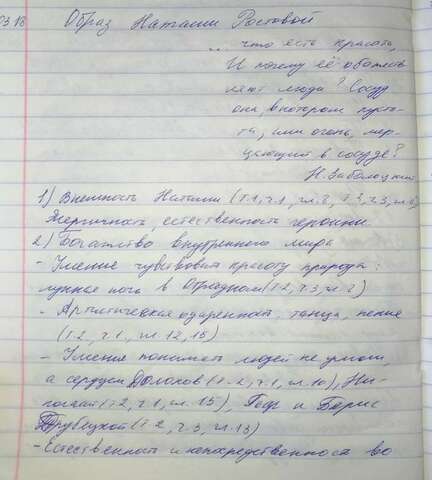 03.18 Образ Наташи Ростовой
... что есть красота,
И почему её обожест
вляют люди? Сосуд
она, в котором пусто-
та, или огонь, мер-
цающий в сосуде?
Н. Заболоцкий
1) Внешность Наташи (т.1, ч.1, гл.8, т.3, ч.3, гл.
Энергичность естественность героини
2) Богатство внутреннего мира
- Умение чувствовать красоту природы:
лунная ночь в Отрадном (т.2, ч.3, гл.2)
- Артистическая одаренность, танца, пения
(т.2, ч.1, гл.12,15)
- Умение понимать людей не умом,
а сердцем Долохов (т.2, ч.1, гл.10), Ни-
колай (т.2, ч.1, гл.15), и Борис
Друбецкой (т.2, ч.3, гл.13)
- Естественность и непосредственность во